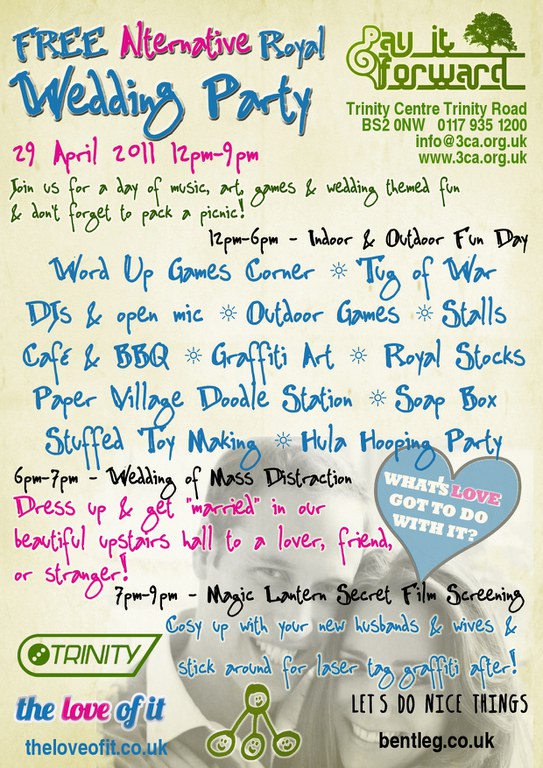 FREE Alternative Royal
Wedding Party
29 April 2011 12pm-9pm
Pay it
forward
Trinity Centre Trinity Road
BS2 0NW 0117 935 1200
info@3ca.org.uk
www.3ca.org.uk
Join us for a day of music, art, games & wedding themed fun
& don't forget to pack a picnic!
12pm-6pm - Indoor & Outdoor Fun Day
Word Up Games Corner ☼ Tug of War
DJs & open mic ☼ Outdoor Games ☼ Stalls
Café & BBQ ☼ Graffiti Art ☼ Royal Stocks
Paper Village Doodle Station ☼ Soap Box
Stuffed Toy Making ☼ Hula Hooping Party
6pm-7pm - Wedding of Mass Distraction
Dress up & get "married" in our
beautiful upstairs hall to a lover, friend,
or stranger!
WHAT'S LOVE
GOT TO DO
WITH IT?
7pm-9pm - Magic Lantern Secret Film Screening
Cosy up with your new husbands & wives &
stick around for laser tag graffiti after!
TRINITY
the love of it
theloveofit.co.uk
LET'S DO NICE THINGS
bentleg.co.uk